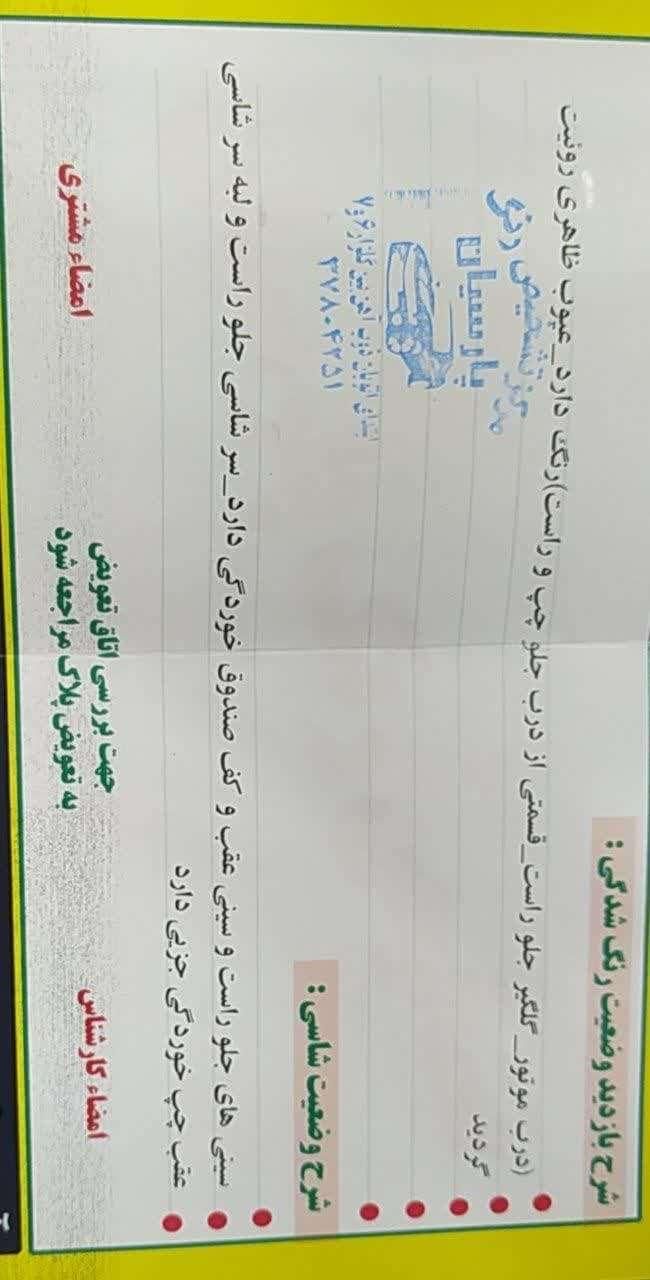 شرح بازدید وضعیت رنگ شدگی :
(درب موتور_گلگیر جلو راست_قسمتی از درب جلو چپ و راست)رنگ دارد_عیوب ظاهری رویت
گردید
تشخیص رنگ
پارسیان
۳۷۸۰۴۲۵۱
شرح وضعیت شاسی :
سینی های جلو راست و سینی عقب و کف صندوق خوردگی دارد_سر شاسی جلو راست و لبه سر شاسی
عقب چپ خوردگی جزیی دارد
امضاء کارشناس
جهت بررسی اتاق تعویض
به تعویض پلاک مراجعه شود
امضاء مشتری